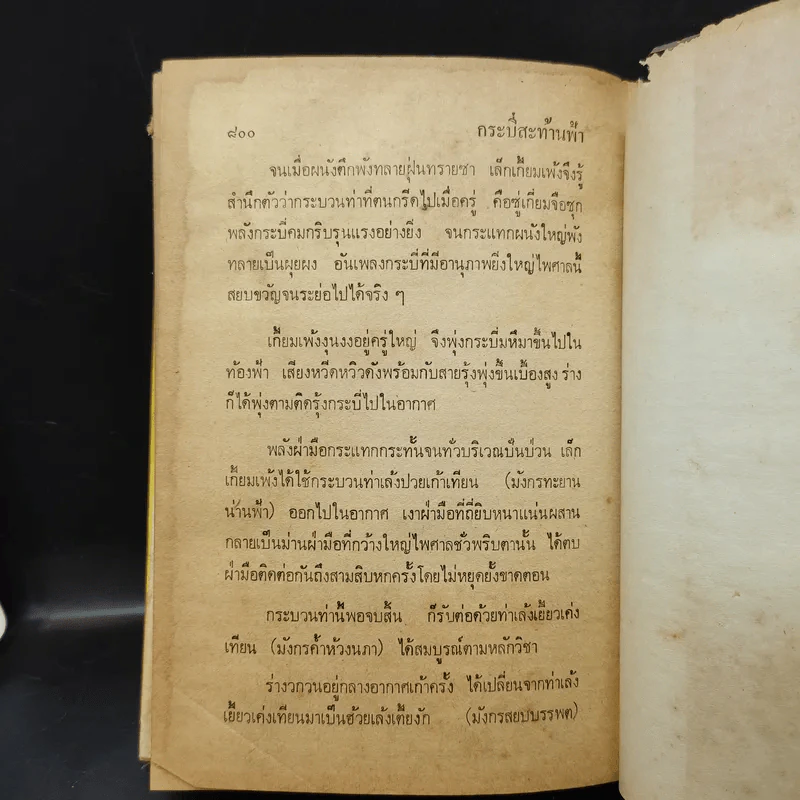 ๘๐๐ กระบี่สะท้านฟ้า
จนเมื่อผนังตึกพังทลายฝุ่นทรายซา เล็กเกี้ยมเพ้งจึงรู้
สำนึกตัวว่ากระบวนท่าที่ตนกรีดไปเมื่อครู่ คือซู่เกี่ยมจือซุก
พลังกระบี่คมกริบรุนแรงอย่างยิ่ง จนกระแทกผนังใหญ่พัง
ทลายเป็นผุยผง อันเพลงกระบี่ที่มีอานุภาพยิ่งใหญ่ไพศาลนี้
สยบขวัญจนระย่อไปได้จริง ๆ
เกี้ยมเพ้งงุนงงอยู่ครู่ใหญ่ จึงพุ่งกระบี่มหึมาขึ้นไปใน
ท้องฟ้า เสียงหวีดหวิวดังพร้อมกับสายรุ้งพุ่งขึ้นเบื้องสูง ร่าง
ก็ได้พุ่งตามติดรุ้งกระบี่ไปในอากาศ
พลังฝ่ามือกระแทกกระทั้นจนทั่วบริเวณปั่นป่วน เล็ก
เกี้ยมเพ้งได้ใช้กระบวนท่าเล้งปวยเก้าเทียน (มังกรทะยาน
น่านฟ้า) ออกไปในอากาศ เงาฝ่ามือที่ถี่ยิบหนาแน่นผสาน
กลายเป็นม่านฝ่ามือที่กว้างใหญ่ไพศาลชั่วพริบตานั้น ได้ตบ
ฝ่ามือติดต่อกันถึงสามสิบหกครั้งโดยไม่หยุดยั้งขาดตอน
กระบวนท่านี้พอจบสิ้น ก็รับต่อด้วยท่าเล้งเยี้ยวเค่ง
เทียน (มังกรค้ำห้วงนภา) ได้สมบูรณ์ตามหลักวิชา
ร่างวกวนอยู่กลางอากาศเก้าครั้ง ได้เปลี่ยนจากท่าเล้ง
เยี้ยวเค่งเทียนมาเป็นฮ้วยเล้งเตี้ยงัก (มังกรสยบบรรพต)